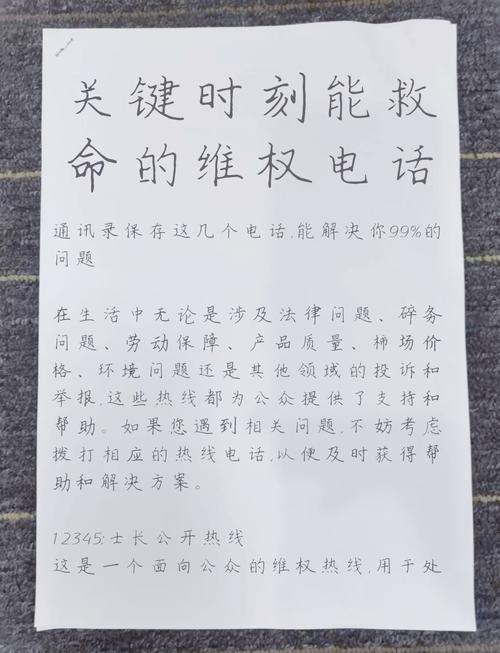 关键时刻能救
命的维权电话
通讯录保存这几个电话,能解决你99%的
问题
在生活中无论是涉及法律问题、碎务
问题、劳动保障、产品质量、柿场价
格、环境问题还是其他领域的投诉和
举报,这些热线都为公众提供了支持和
帮助。如果您遇到相关问题,不妨考虑
拨打相应的热线电话,以便及时获得帮
助和解决方案。
12345:士长公开热线
这是一个面向公众的维权热线,用于处